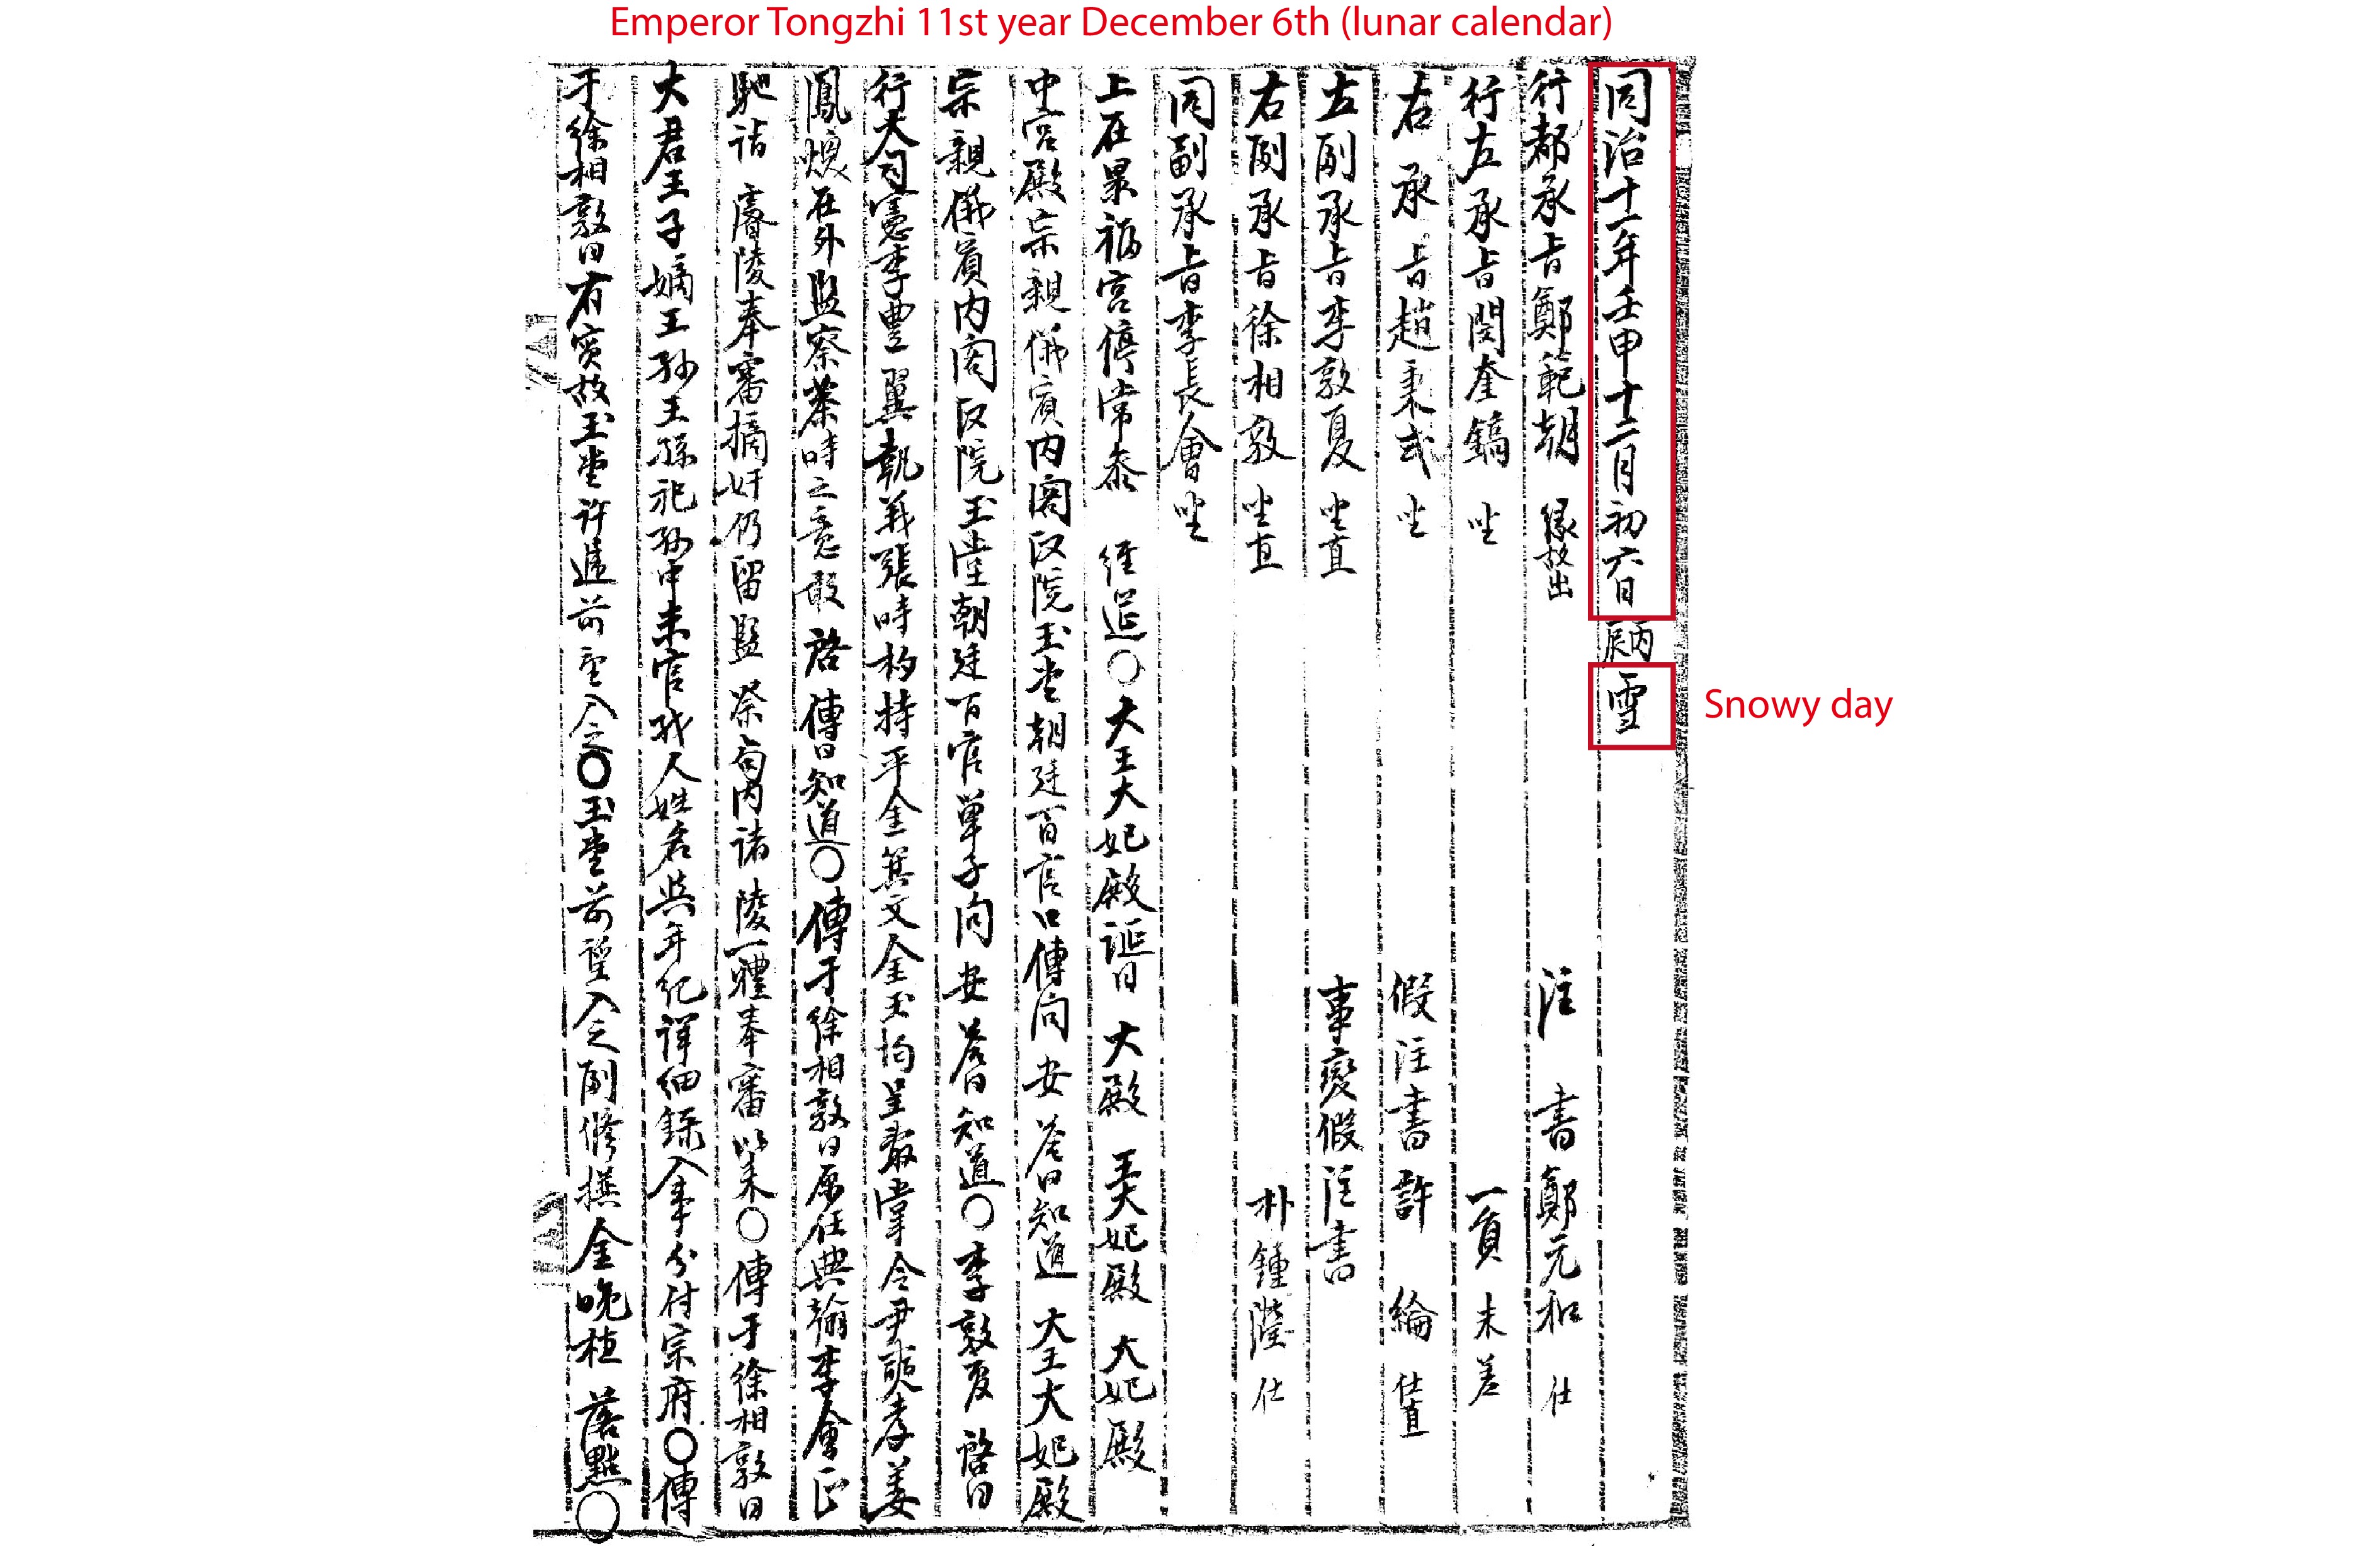 Emperor Tongzhi 11st year December 6th (lunar calendar)
同治十一年壬申十二月初六日丙辰雪
Snowy day
行都承旨鄭範朝 緣故出 注 書鄭元和 仕
行左承旨閔奎鎬 坐 一員 未差
右承旨趙秉式 坐 假注書許 綸 仕直
左副承旨李敦夏 坐直 事變假注書
右副承旨徐相敦 坐直 朴鍾 仕
同副承旨李長會 坐
上在景福宮停常參 經筵○大王大妃殿誕日 大殿 王大妃殿 大妃殿
中宮殿宗親儀賓內閣政院玉堂朝廷百官口傳問 安答曰知道 大王大妃殿
宗親儀賓內閣政院玉堂朝廷百官單子問 安答曰知道○李敦夏 啓曰
行大司憲李豊翼執義張時杓持平金箕文金玉均呈辭掌令尹 姜
鳳煥在外監察茶時之意敢 啓 傳曰知道○傳于徐相敦曰原任典翰李會正
馳詣 睿陵奉審摘奸仍留監 祭 內諸 陵一體奉審以來○傳于徐相敦曰
大君王子嫡王孫王孫祀孫中未官 人姓名與年紀詳細錄入事分付宗府○傳
于徐相敦曰有實故玉堂許遞前望入之○玉堂前望入之副修撰金晚植 落點○